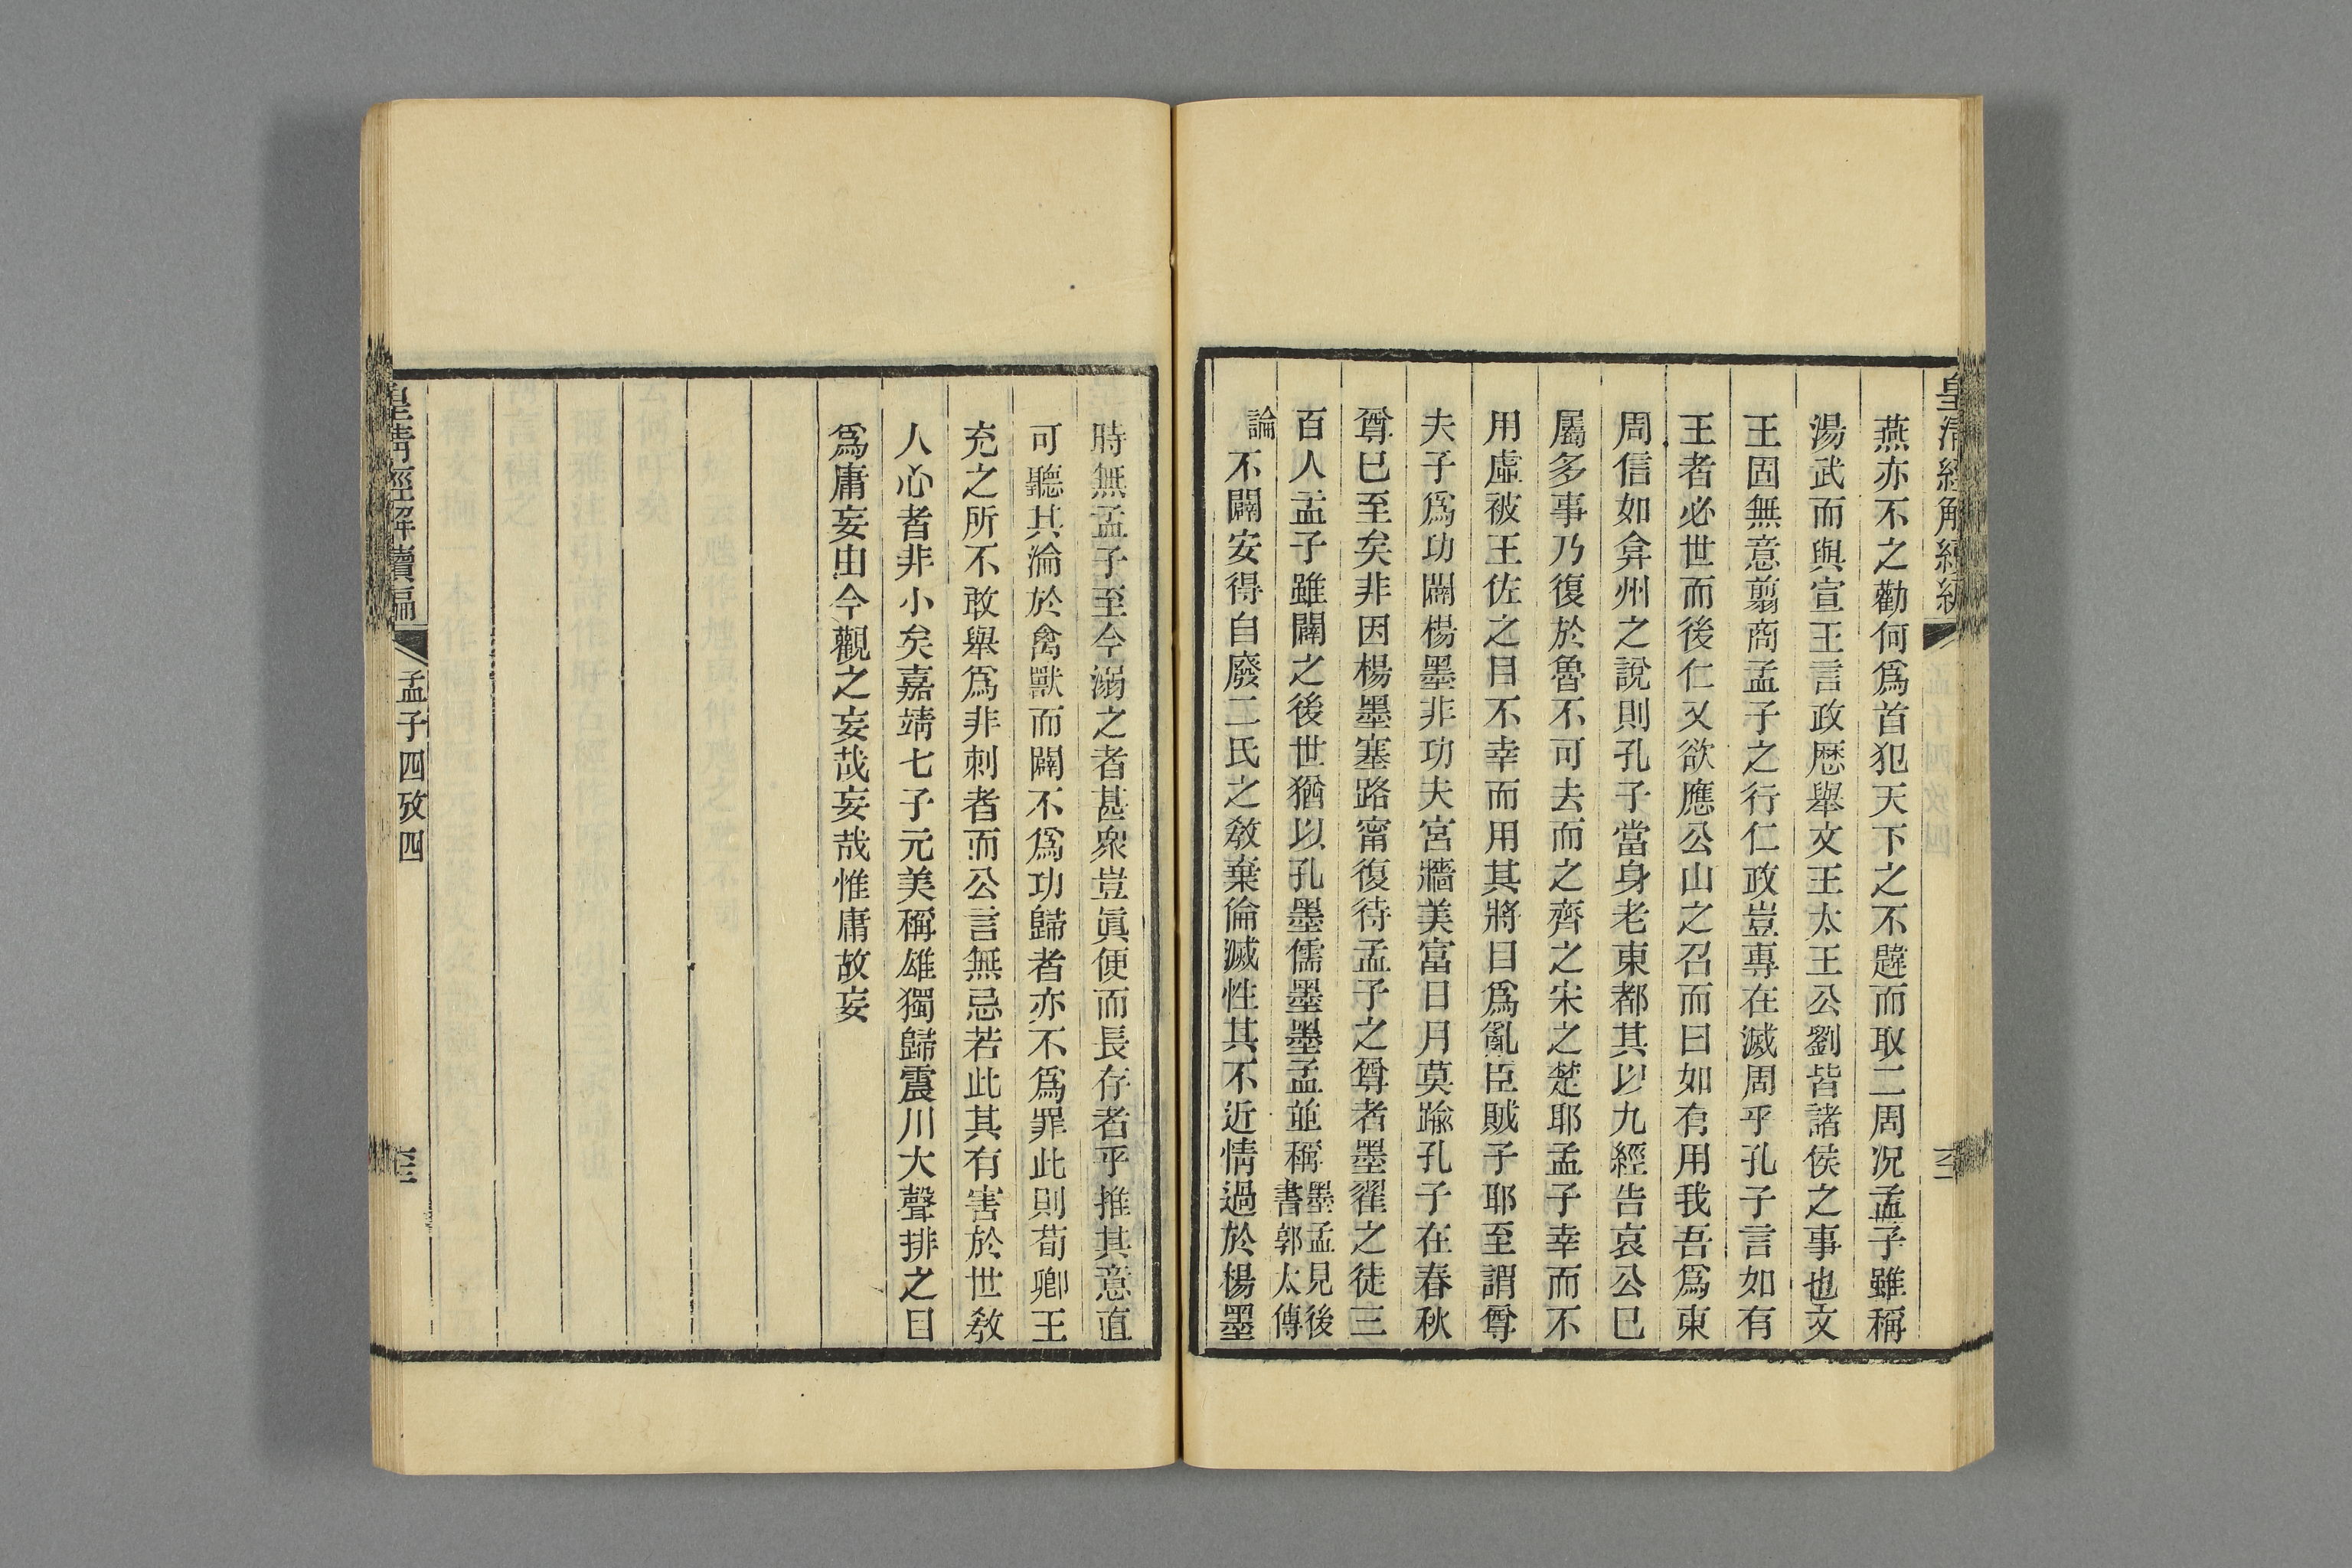 皇清經解續編
燕亦不之勸何爲首犯天下之不韙而取二周况孟子雖稱
湯武而與宣王言政歷舉文王太王公劉皆諸侯之事也文
王固無意翦商孟子之行仁政豈專在滅周乎孔子言如有
王者必世而後仁又欲應公山之召而曰如有用我吾爲東
周信如弇州之說則孔子當身老東都其以九經告哀公已
屬多事乃復於魯不可去而之齊之宋之楚耶孟子幸而不
用虛被王佐之目不幸而用其將目爲亂臣賊子耶至謂尊
夫子爲功闢楊墨非功夫宮牆美富日月莫踰孔子在春秋
尊已至矣非因楊墨塞路甯復待孟子之尊者墨翟之徒三
百人孟子雖闢之後世猶以孔墨儒墨墨孟並稱墨孟見後
書郭太傳
論不闢安得自廢二氏之敎棄倫滅性其不近情過於楊墨
時無孟子至今溺之者甚衆豈眞便而長存者乎推其意直
可聽其淪於禽獸而闢不爲功歸者亦不爲罪此則荀卿王
充之所不敢舉爲非刺者而公言無忌若此其有害於世敎
人心者非小矣嘉靖七子元美稱雄獨歸震川大聲排之目
爲庸妄由今觀之妄哉妄哉惟庸故妄
皇清經解續編
孟子四攷四